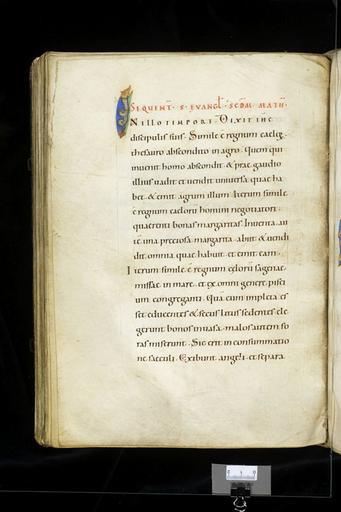 SEQUENT̄· S· EVANGL̄· SCDM· MATH̄·
IN illo tempore Dixit ihc
discipulis suis· Simile ē regnum caeloꝝ·
thesauro abscondito in agro· Quem qui
inuenit homo abscondit & prae gaudio
illius uadit et uendit uniuersa quae ha
bet & emit agrum illum· Iterum simile
ē regnum caeloru homini negotiatori·
quaerenti bonas margaritas· Inuenta au
tē una preciosa margarita· abiit & uendi
dit omnia quae habuit et emit eam·
Iterum simile· ē regnum celorū sagenae
missae in mare· et ex omni genere pisci
um congreganti· Quā cum impleta es
set educentes & secus litus sedentes ele
gerunt bonos in uasa· malos autem fo
ras miserunt· Sic erit in consummatio
ne saeculi· Exibunt angeli· et separa